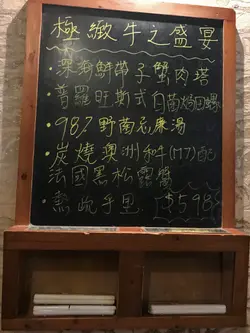 極緻牛之盛宴
• 深海鮮帶子蟹肉塔
• 普羅旺斯式白菌焗田螺
• 98% 野菌忌廉湯
• 炭燒澳洲和牛(M7)配
法國黑松露醬
• 焦 千里 $598